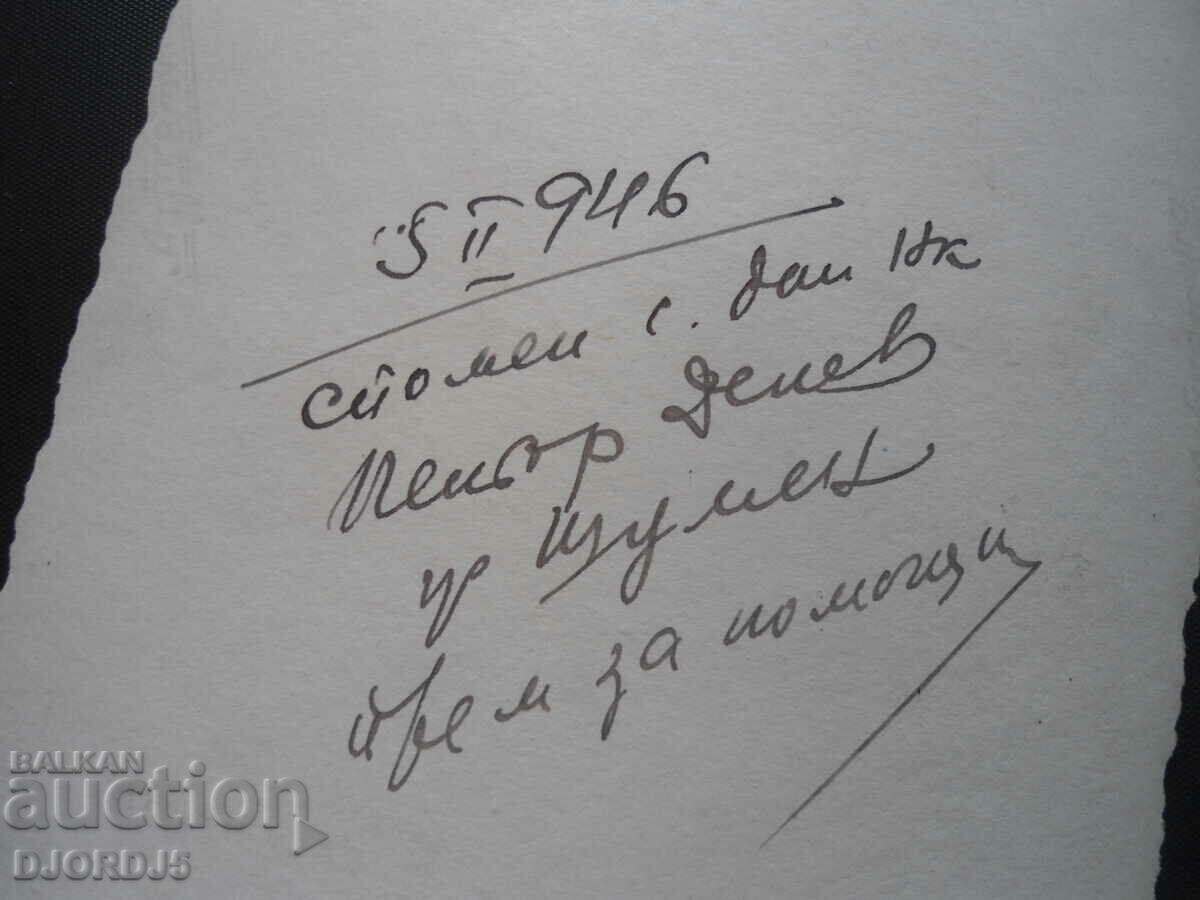 5 II 946
спомен с. дай нк
Пентър Денев
гр Шумен
прем за помощи
BALKAN
auction
DJORDJ5